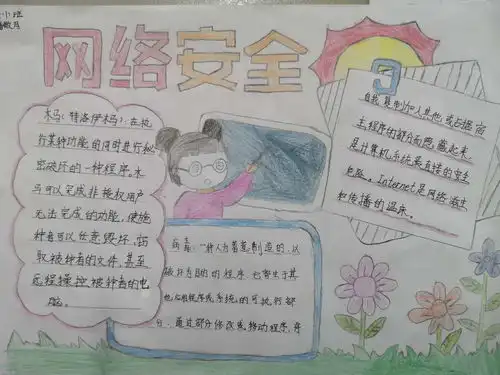 小班
网络安全
木马(特洛伊木马):在执
行某种功能的同时进行秘
密破坏的一种程序,木
马可以完成非授权用户
无法完成的功能,使施
种者可以任意毁坏、窃
取被种者的文件,甚至
远程操控被种者的电
脑。
病毒:一种人为蓄意制造的、以
破坏为目的的程序,它寄生于其
他应用程序或系统的可执行部
分,通过部分修改或移动程序,将
自我复制加入其他或占据宿
主程序的部分而隐藏起来
是计算机系统最直接的安全
危险。Internet是网络滋生
和传播的温床。